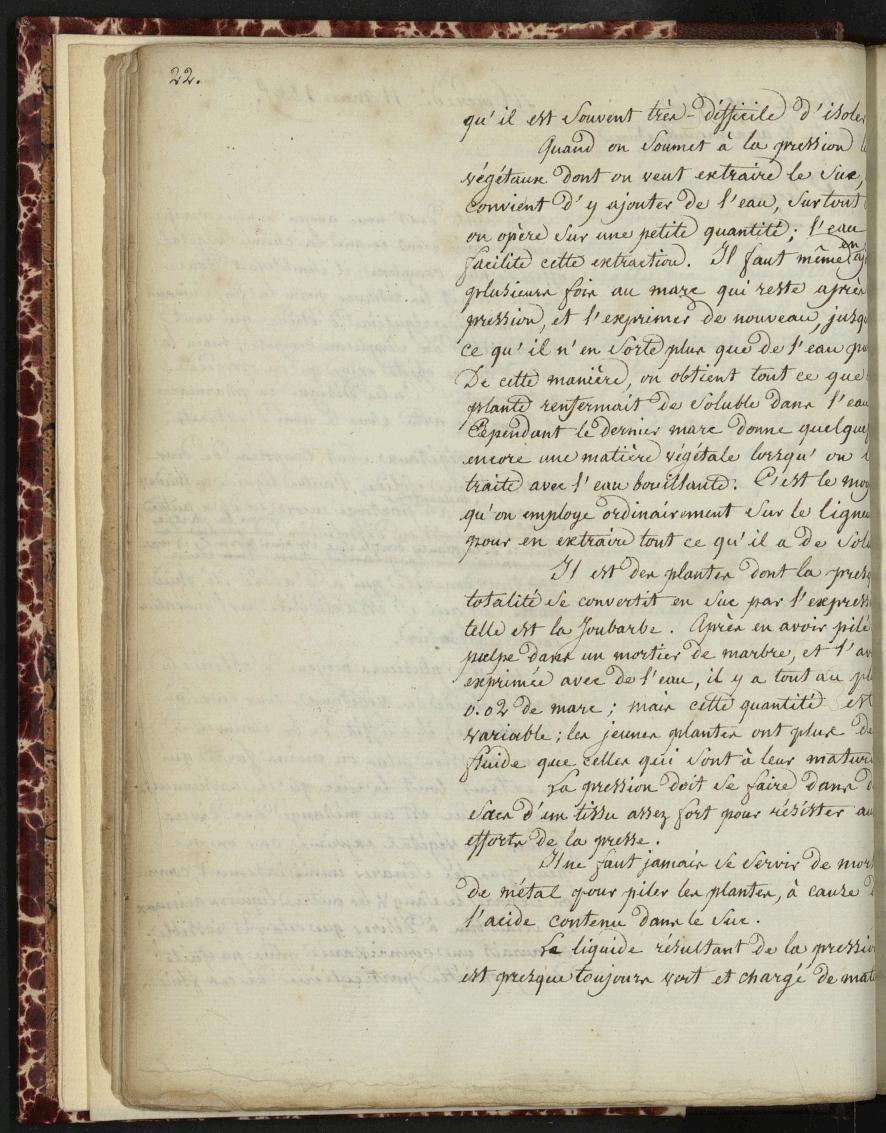 22.
qu'il est souvent très-difficile d'isole
Quand on soumet à la pression
végétaux dont on veut extraire le suc,
convient d'y ajouter de l'eau, surtout
on opère sur une petite quantité; l'eau
facilite cette extraction. Il faut même en
plusieurs fois au marc qui reste après
pression, et l'exprimer de nouveau, jusq
ce qu'il n'en sorte plus que de l'eau pu
De cette manière, on obtient tout ce que
plante renfermait de soluble dans l'eau
Cependant le dernier marc donne quelque
encore une matière végétale lorsqu'on
traite avec l'eau bouillante. C'est le moy
qu'on employe ordinairement sur le ligne
pour en extraire tout ce qu'il a de solu
Il est des plantes dont la presq
totalité se convertit en suc par l'express
telle est la Joubarbe. Après en avoir pilé
pulpe dans un mortier de marbre, et l'av
exprimée avec de l'eau, il y a tout au pl
0.02 de marc; mais cette quantité est
variable; les jeunes plantes ont plus de
fluide que celles qui sont à leur maturi
La pression doit se faire dans d
sacs d'un tissu assez fort pour résister au
efforts de la presse.
Il ne faut jamais se servir de mort
de métal pour piler les plantes, à cause d
l'acide contenu dans le suc.
Le liquide résultant de la pressio
est presque toujours vert et chargé de mat